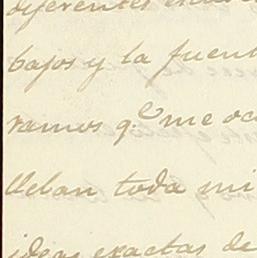 diferentes
bajos y la fuent
ramos q.e me oc
llevan toda mi
ideas exactas de